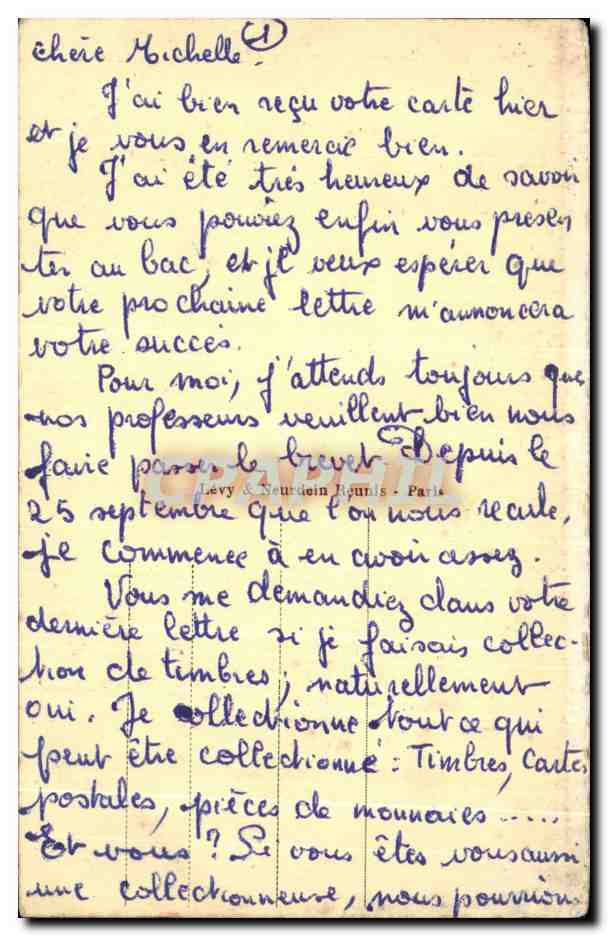 chère Michelle. (1)
J'ai bien reçu votre carte hier
et je vous en remercie bien.
J'ai été très heureux de savoir
que vous pouviez enfin vous présen
ter au bac, et je veux espérer que
votre prochaine lettre m'annoncera
votre succès.
Pour moi, j'attends toujours que
nos professeurs veuillent bien nous
faire passer le brevet. Depuis le
CPAPHIL
Lévy & Neurdein Réunis - Paris
25 septembre que l'on nous recule,
je commence à en avoir assez.
Vous me demandiez dans votre
dernière lettre si je faisais collec-
tion de timbres; naturellement
oui. Je collectionne tout ce qui
peut être collectionné : Timbres, Cartes
postales, pièces de monnaies .....
Et vous ? Si vous êtes vous aussi
une collectionneuse, nous pourrions